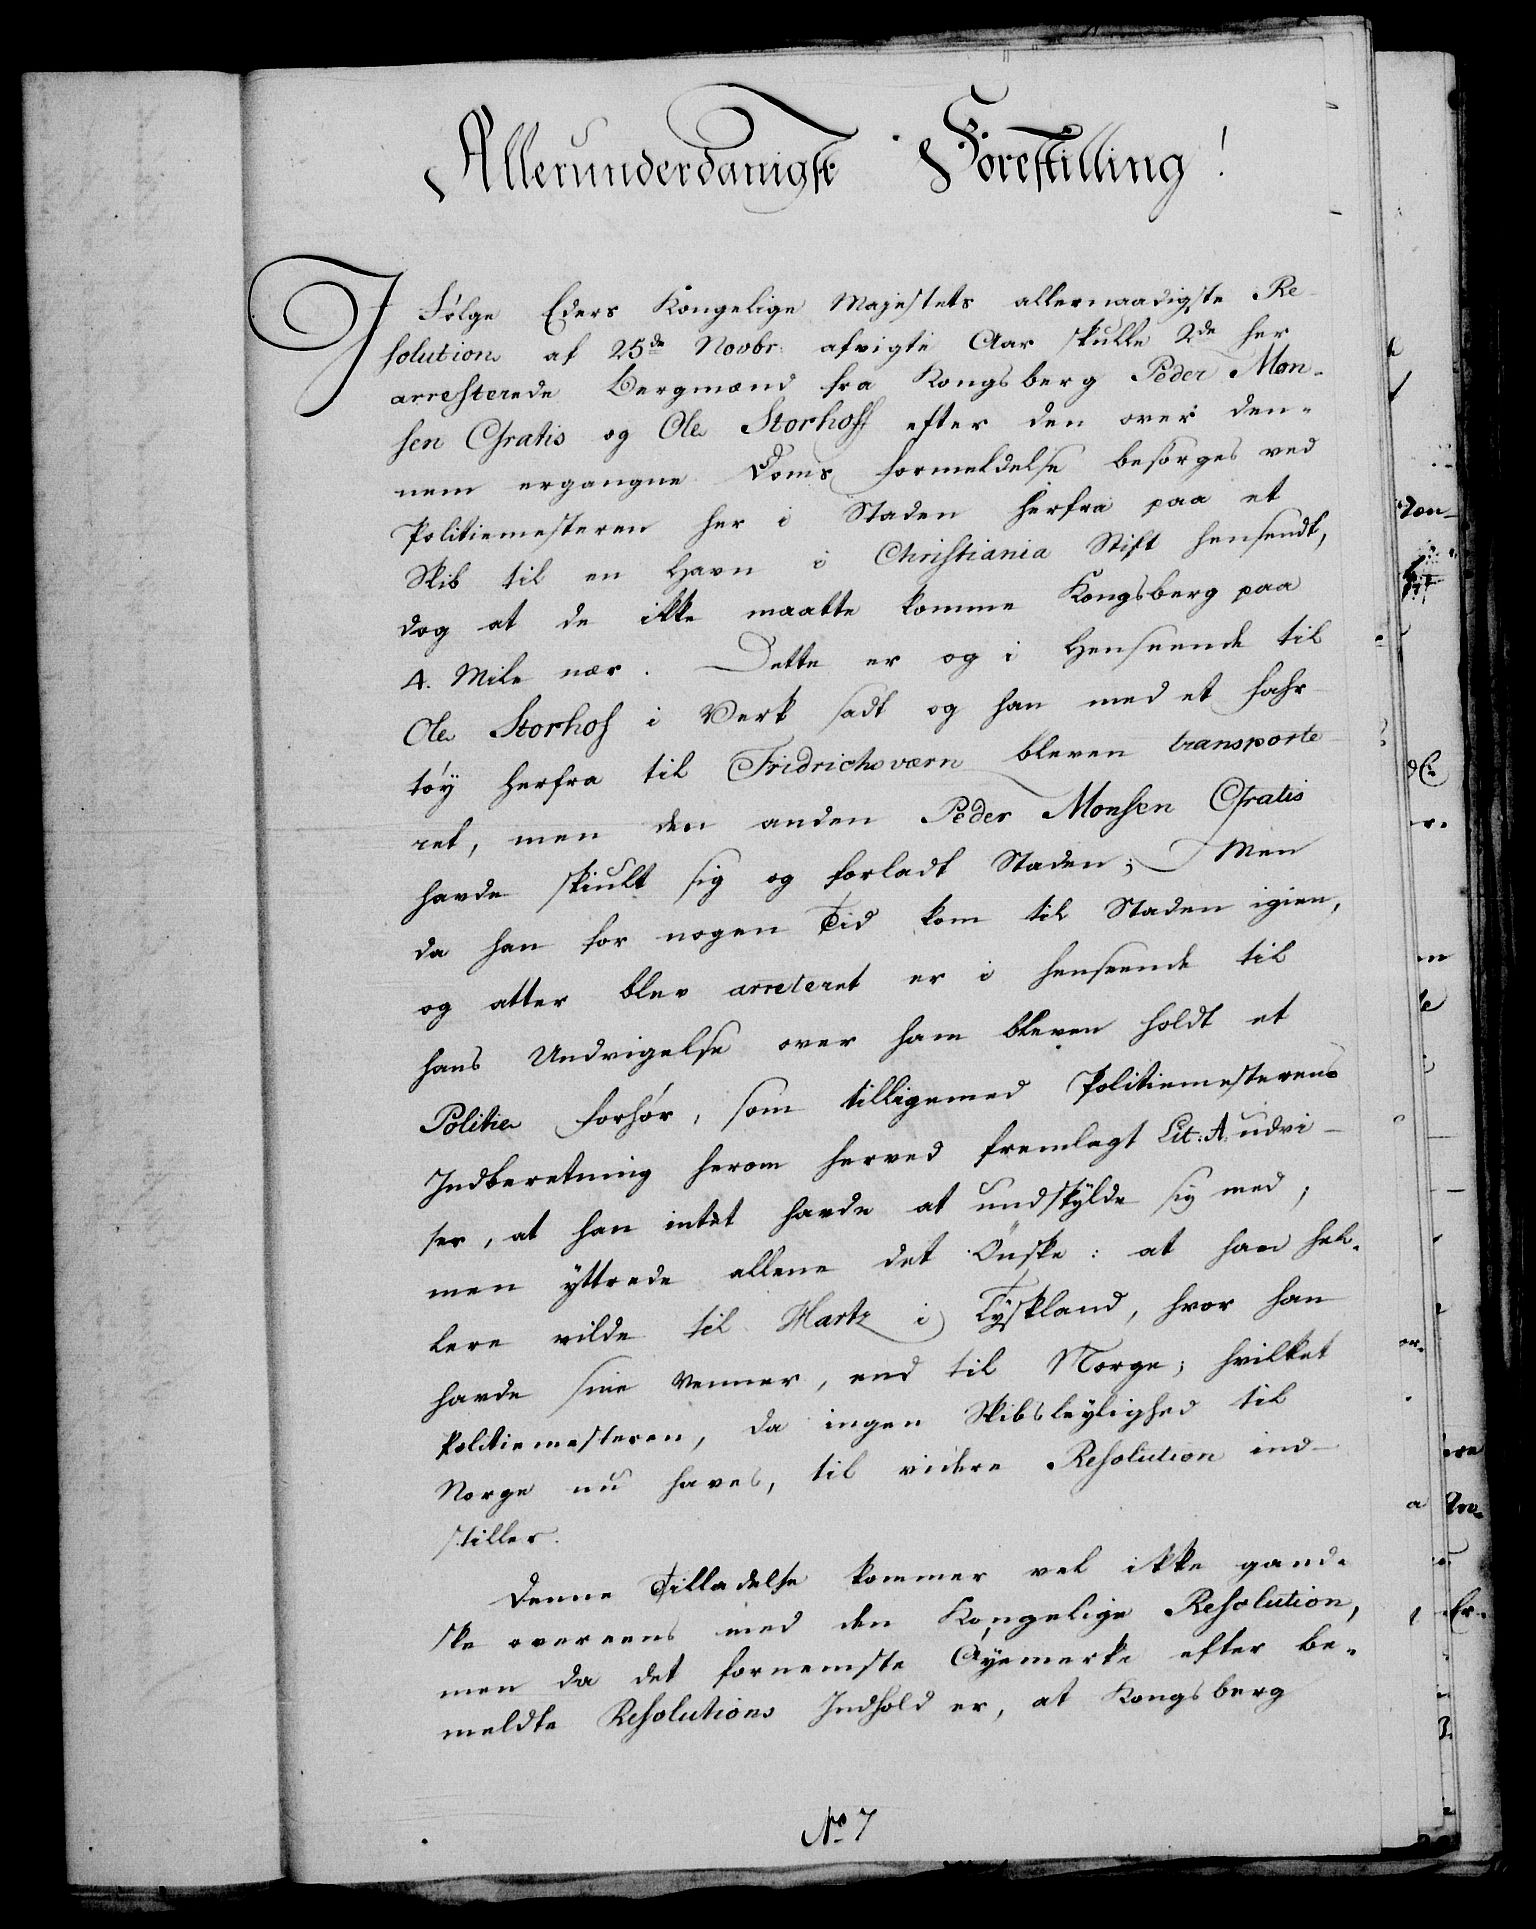 Allerunderdanigste Forestilling!
I Følge Eders Kongelige Majestets allernaadigste Re-
solution af 25de Novbr: afvigte Aar skulle 2de her
arresterede Bergmænd fra Kongsberg Peder Mon-
sen Gratis og Ole Storhoff efter den over den-
nem ergangne Doms formeldelse besørges ved
Politiemesteren her i Staden herfra paa et
Skib til en Havn i Christiania Stift hensendt,
dog at de ikke maatte komme Kongsberg paa
4. Mile nær. Dette er og i Henseende til
Ole Storhof i Verk sadt og han med et fahr-
tøy herfra til Fridrichsværn bleven transporte-
ret, men den anden Peder Monsen Gratis
havde skiult sig og forladt Staden; Men
da han for nogen Tid kom til Staden igien,
og atter blev arreteret er i henseende til
hans Undvigelse over ham bleven holdt et
Politie forhør, som tilligemed Politiemesterens
Indberetning herom herved fremlagt Lit: A. udvi-
ser, at han intet havde at undskylde sig med,
men yttrede allene det Ønske: at han hel-
lere vilde til Hartz i Tyskland, hvor han
havde sine Venner, end til Norge; hvilket
Politiemesteren, da ingen Skibsleylighed til
Norge nu haves, til videre Resolution ind-
stiller.
Denne Tilladelse kommer vel ikke gand-
ske overeens med den Kongelige Resolution,
men da det fornemste Øyemerke efter be-
meldte Resolutions Indhold er, at Kongsberg
No 7